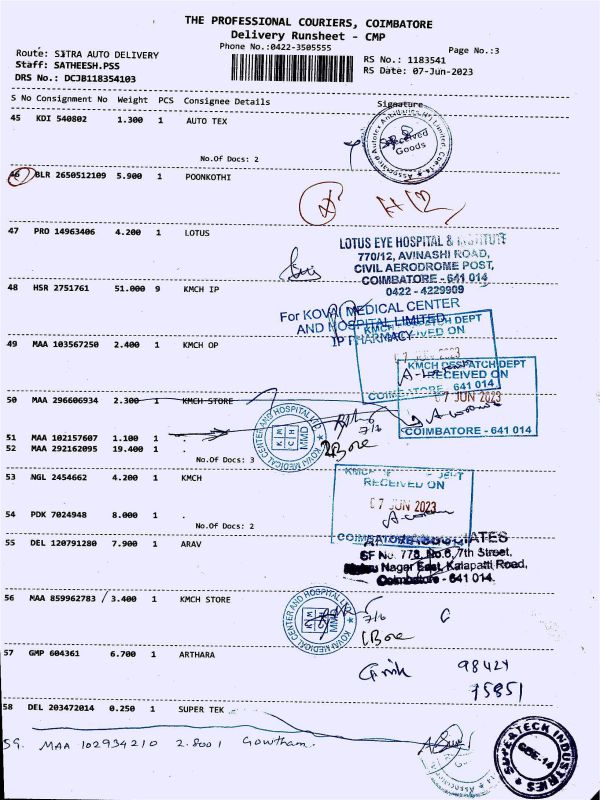 THE PROFESSIONAL COURIERS, COIMBATORE
Delivery Runsheet - CMP
Phone No.:0422-3505555
Page No.:3
Route: SITRA AUTO DELIVERY
Staff: SATHEESH.PSS
DRS No.: DCJB118354103
RS No.: 1183541
RS Date: 07-Jun-2023
S No Consignment No Weight PCS Consignee Details Signature
45 KDI 540802 1.300 1 AUTO TEX
Received
Goods
No.Of Docs: 2
46 BLR 2650512109 5.900 1 POONKOTHI
47 PRO 14963406 4.200 1 LOTUS
LOTUS EYE HOSPITAL & INSTITUTE
770/12, AVINASHI ROAD,
CIVIL AERODROME POST,
COIMBATORE - 641 014
0422 - 4229909
48 HSR 2751761 51.000 9 KMCH IP
For KOVAI MEDICAL CENTER
AND HOSPITAL LIMITED
IP PHARMACY
49 MAA 103567250 2.400 1 KMCH OP
KMCH DESPATCH DEPT
RECEIVED ON
07 JUN 2023
COIMBATORE - 641 014
KMCH DESPATCH DEPT
RECEIVED ON
07 JUN 2023
COIMBATORE - 641 014
50 MAA 296606934 2.300 1 KMCH STORE
KOVAI MEDICAL CENTER AND HOSPITAL LTD
KMCH
MMD
7/6
2 Box
51 MAA 102157607 1.100 1 .
52 MAA 292162095 19.400 1 .
No.Of Docs: 3
53 NGL 2454662 4.200 1 KMCH
KMCH DESPATCH DEPT
RECEIVED ON
07 JUN 2023
COIMBATORE
54 PDK 7024948 8.000 1 .
No.Of Docs: 2
55 DEL 120791280 7.900 1 ARAV
SF No. 778, No.6, 7th Street,
Nehru Nagar East, Kalapatti Road,
Coimbatore - 641 014.
56 MAA 859962783 3.400 1 KMCH STORE
KOVAI MEDICAL CENTER AND HOSPITAL LTD
MMD
7/6
1 Box
57 GMP 604361 6.700 1 ARTHARA
98424
75851
58 DEL 203472014 0.250 1 SUPER TEK
59. MAA 102934210 2.800 1 Gowtham.
CBE-14